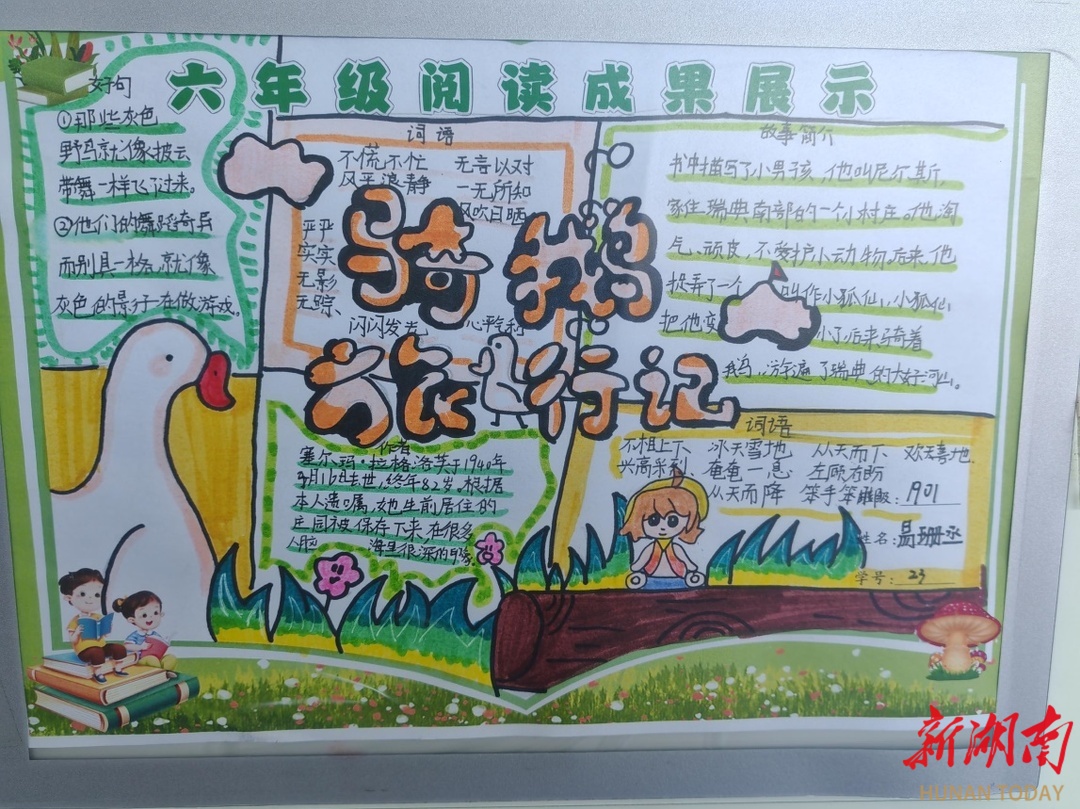 六年级阅读成果展示
好句
①那些灰色
野鸟就像披云
带舞一样飞了过来。
②他们的舞蹈奇异
而别具一格,就像
灰色的影子在做游戏。
词语
不慌不忙 无言以对
风平浪静 一无所知
风吹日晒
严严
实实
无影
无踪、
闪闪发光 心平气和
故事简介
书中描写了小男孩,他叫尼尔斯,
家住瑞典南部的一个小村庄。他淘
气、顽皮,不爱护小动物,后来,他
捉弄了一个 叫作小狐仙,小狐仙
把他变 小了后来骑着
我鸟,游遍了瑞典的大好河山。
骑鹅
旅行记
作者
塞尔玛·拉格洛芙于1940年
3月16日去世,终年82岁。根据
本人遗嘱,她生前居住的
庄园被保存下来,在很多
人脑 海里很深的印象
词语
不相上下 冰天雪地 从天而下 欢天喜地
兴高采烈 奄奄一息 左顾右盼
从天而降 笨手笨脚
班级:1901
姓名:易珊丞
学号:23
新湖南
HUNAN TODAY